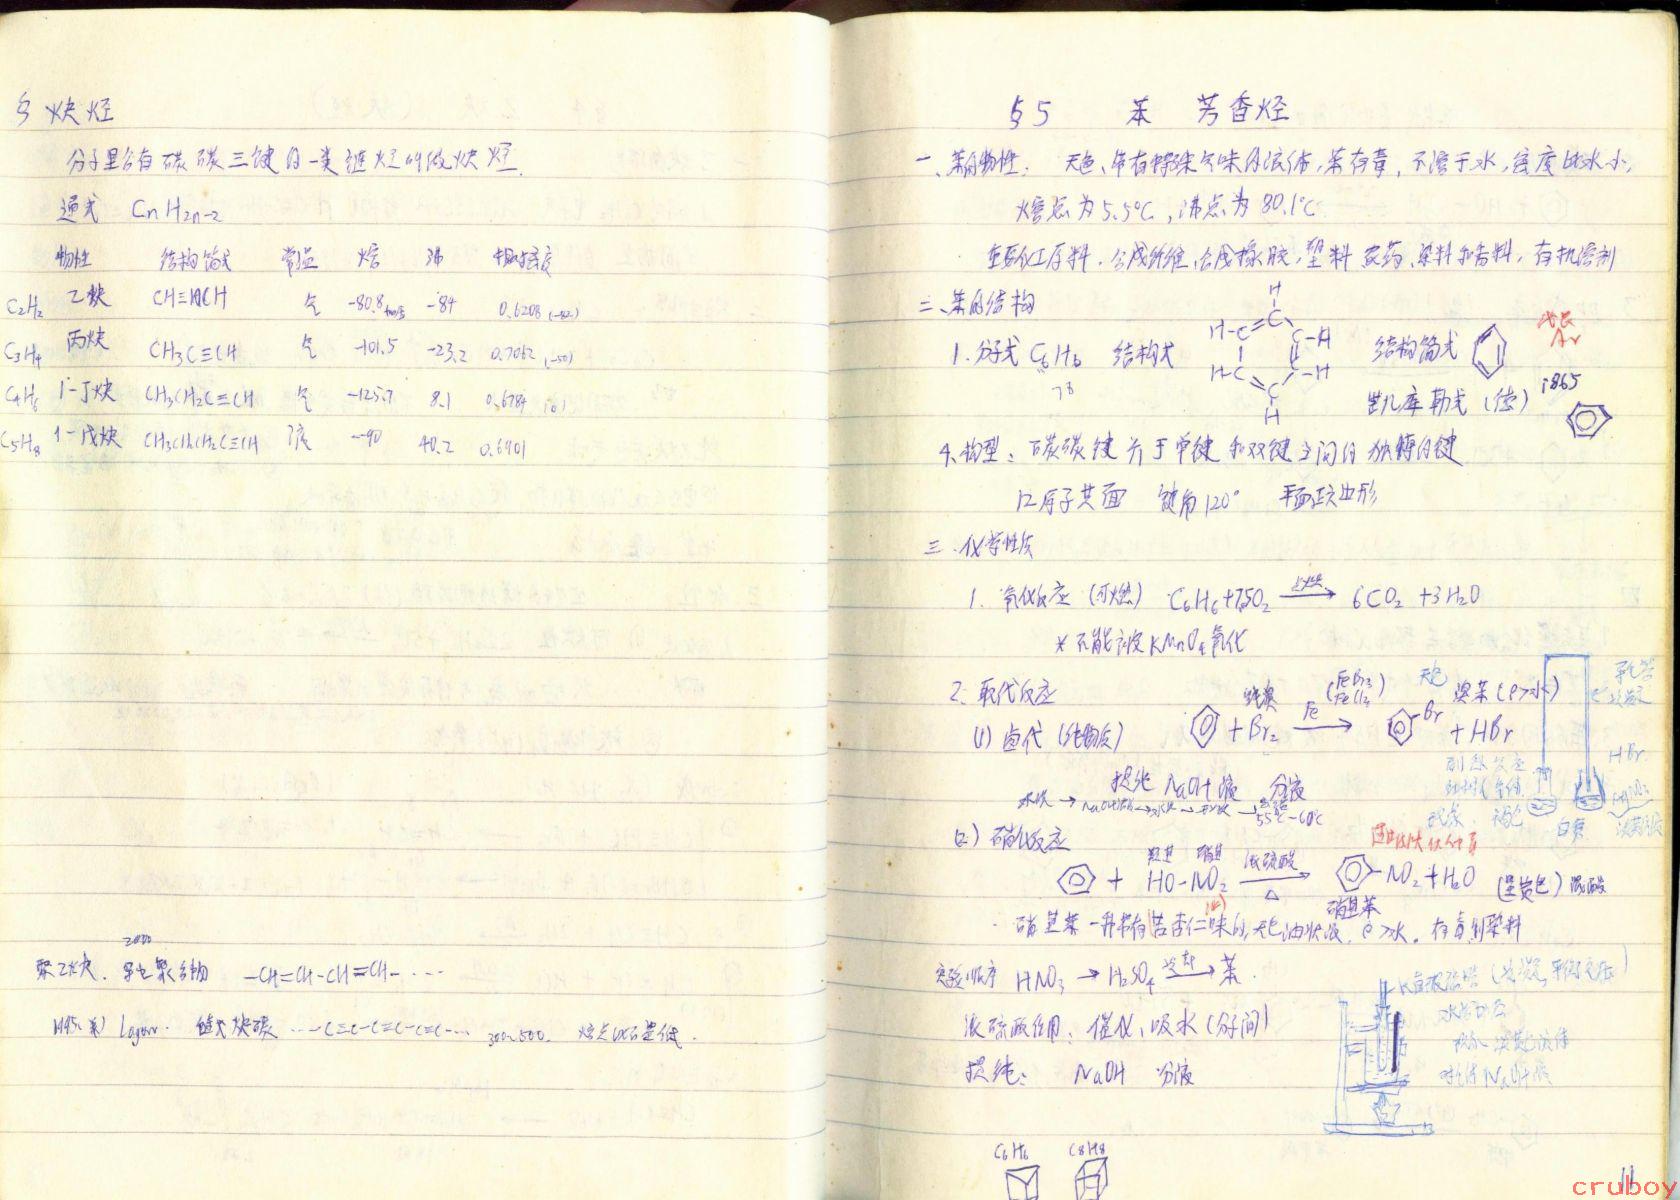 § 炔烃
分子里含有碳碳三键的一类链烃叫做炔烃.
通式 CnH2n-2
物性 结构简式 常温 熔 沸 相对密度
C2H2 乙炔 CH≡CH 气 -80.8 -84 0.6208 (-82)
C3H4 丙炔 CH3C≡CH 气 -101.5 -23.2 0.7062 (-50)
C4H6 1-丁炔 CH3CH2C≡CH 气 -125.7 8.1 0.6784 (0)
C5H8 1-戊炔 CH3CH2CH2C≡CH 液 -90 40.2 0.6901
2000
聚乙炔. 导电聚合物 -CH=CH-CH=CH-····
1995. 美) Lagow. 链状炔碳 ···-C≡C-C≡C-C≡C-··· 300~500.
§5 苯 芳香烃
一、苯的物性: 无色、带有特殊气味的液体,苯有毒,不溶于水,密度比水小,
熔点为5.5℃,沸点为80.1℃
重要化工原料.合成纤维,合成橡胶,塑料 农药,染料和香料,有机溶剂
二、苯的结构
1.分子式 C6H6 结构式 结构简式
78
Ar
凯库勒式(德) 1865
H H-C C C-H C H-C C-H C H
4.构型: 碳碳键介于单键和双键之间的独特的键
12原子共面 键角120° 平面正六边形
三.化学性质
1. 氧化反应 (可燃) C6H6+7.5O2 点燃→ 6CO2 +3H2O
* 不能被KMnO4氧化
2. 取代反应
(1) 卤代 (纯物质) +Br2 Fe→ -Br + HBr
纯溴 (FeBr3 FeCl3) 无色 溴苯(ρ>水)
导管 冷凝
HBr
白雾
提纯 NaOH液 分液
水洗→NaOH溶液→水洗→干燥→蒸馏
55℃~60℃
(2) 硝化反应
+ HO-NO2 浓硫酸 △→ -NO2+H2O
羟基 硝基 硝基苯
(显黄色) 混酸
硝基苯 一种带有苦杏仁味的,无色油状液, ρ>水. 有毒,制染料
实验顺序 HNO3 → H2SO4 冷却→苯.
浓硫酸作用: 催化、吸水(分子间)
提纯: NaOH 分液
水浴加热
C6H6 C8H8
11
cruboy